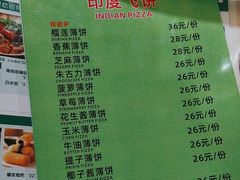 印度飞饼
INDIAN PIZZA
榴莲薄饼 36元/份
DURIAN PIZZA
香蕉薄饼 28元/份
BANANA PIZZA
芝麻薄饼 28元/份
SESAME PIZZA
朱古力薄饼 26元/份
CHOCOLATE PIZZA
菠萝薄饼 26元/份
PINEAPPLE PIZZA
草莓薄饼 26元/份
STRAWBERRY PIZZA
花生酱薄饼 26元/份
PEANUT BUTTER PIZZA
玉米薄饼 26元/份
CORN PIZZA
牛油薄饼 26元/份
BUTTER PIZZA
提子薄饼 26元/份
RAISIN PIZZA
椰子酱薄饼 26元/份